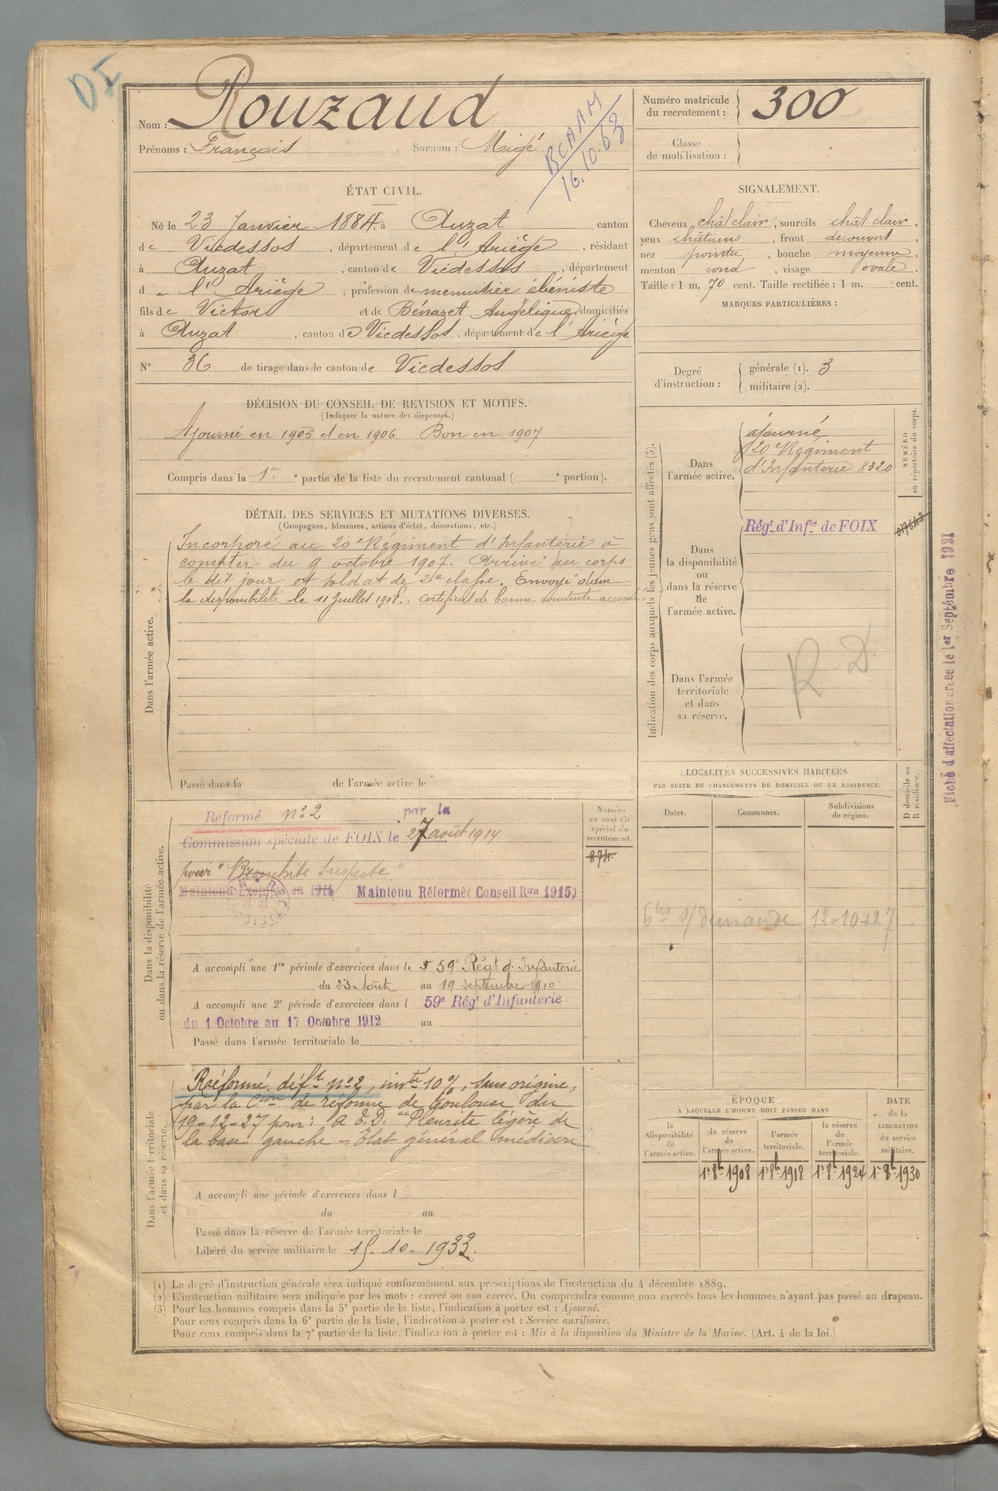 DI
Nom : Rouzaud
Prénoms : François Surnom : Maigé
BCAAM
16.10.63
Numéro matricule du recrutement : 300
Classe de mobilisation :
ÉTAT CIVIL.
Né le 23 Janvier 1884 à Auzat canton
de Vicdessos, département de l'Ariège, résidant
à Auzat, canton de Vicdessos, département
d e l'Ariège, profession de menuisier ébéniste
fils de Victor et de Bénazet Angélique, domiciliés
à Auzat, canton de Vicdessos, département de l'Ariège
N° 36 de tirage dans le canton de Vicdessos
SIGNALEMENT.
Cheveux chât clair, sourcils chât clair,
yeux châtains, front découvert,
nez pointu, bouche moyenne,
menton rond, visage ovale.
Taille : 1 m. 70 cent. Taille rectifiée : 1 m. cent.
MARQUES PARTICULIÈRES :
Degré d'instruction :
générale (1). 3
militaire (2).
DÉCISION DU CONSEIL DE REVISION ET MOTIFS.
(Indiquer la nature des dispenses.)
Ajourné en 1905 et en 1906. Bon en 1907
Compris dans la 1re partie de la liste du recrutement cantonal ( e portion).
DÉTAIL DES SERVICES ET MUTATIONS DIVERSES.
(Campagnes, blessures, actions d'éclat, décorations, etc.)
Dans l'armée active.
Incorporé au 20e Régiment d'Infanterie à
compter du 9 octobre 1907. Arrivé au corps
le dit jour et soldat de 2e classe. Envoyé dans
la disponibilité le 11 Juillet 1908. Certificat de bonne conduite accordé.
Passé dans la de l'armée active le
Indication des corps auxquels les jeunes gens sont affectés (3).
NUMÉRO au répertoire du corps.
Dans l'armée active.
ajourné
120e Régiment
d'Infanterie 8320
Dans la disponibilité ou dans la réserve de l'armée active.
Régt d'Infie de FOIX
Dans l'armée territoriale et dans sa réserve.
R D
Fiche d'affectation créée le 1er Septembre 1921
LOCALITÉS SUCCESSIVES HABITÉES
PAR SUITE DE CHANGEMENTS DE DOMICILE OU DE RÉSIDENCE.
Dates. Communes. Subdivisions de région. D domicile ou R résidence.
6 bis s/ demande 12-10-27
Dans la disponibilité ou dans la réserve de l'armée active.
Numéro au contrôle spécial du recrutement.
874
Réformé n° 2 par la
Commission spéciale de FOIX le 27 août 1914
pour "Bronchite suspecte"
Maintenu Exempté en 1914 Maintenu Réformé (Conseil Ron 1915)
A accompli une 1re période d'exercices dans le 59e Régt d'Infanterie
du 23 Août au 19 septembre 1910
A accompli une 2e période d'exercices dans l 59e Régt d'Infanterie
du 1 Octobre au 17 Octobre 1912 au
Passé dans l'armée territoriale le
Dans l'armée territoriale et dans sa réserve.
Réformé déft n° 2, invté 10 %, sans origine,
par la Cion de réforme de Toulouse du
19-12-27 pour : "Pleurite légère de
la base gauche - Etat général médiocre
A accompli une période d'exercices dans l
du au
Passé dans la réserve de l'armée territoriale le
Libéré du service militaire le 15-10-1933.
ÉPOQUE
À LAQUELLE L'HOMME DOIT PASSER DANS
DATE de la LIBÉRATION du service militaire.
la disponibilité de l'armée active. la réserve de l'armée active. l'armée territoriale. la réserve de l'armée territoriale.
1er 8bre 1908 1er 8bre 1918 1er 8bre 1924 1er 8bre 1930
(1) Le degré d'instruction générale sera indiqué conformément aux prescriptions de l'instruction du 4 décembre 1889.
(2) L'instruction militaire sera indiquée par les mots : exercé ou non exercé. On comprendra comme non exercés tous les hommes n'ayant pas passé au drapeau.
(3) Pour les hommes compris dans la 5e partie de la liste, l'indication à porter est : Ajourné.
Pour ceux compris dans la 6e partie de la liste, l'indication à porter est : Service auxiliaire.
Pour ceux compris dans la 7e partie de la liste, l'indication à porter est : Mis à la disposition du Ministre de la Marine. (Art. 4 de la loi.)